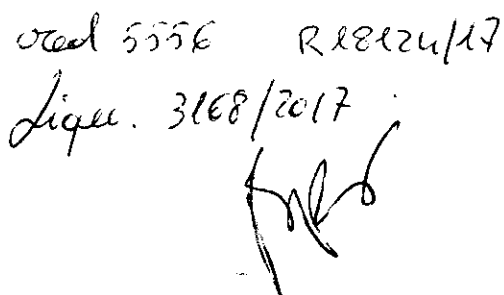 cred 5556 R18124/17
Liqu. 3168/2017